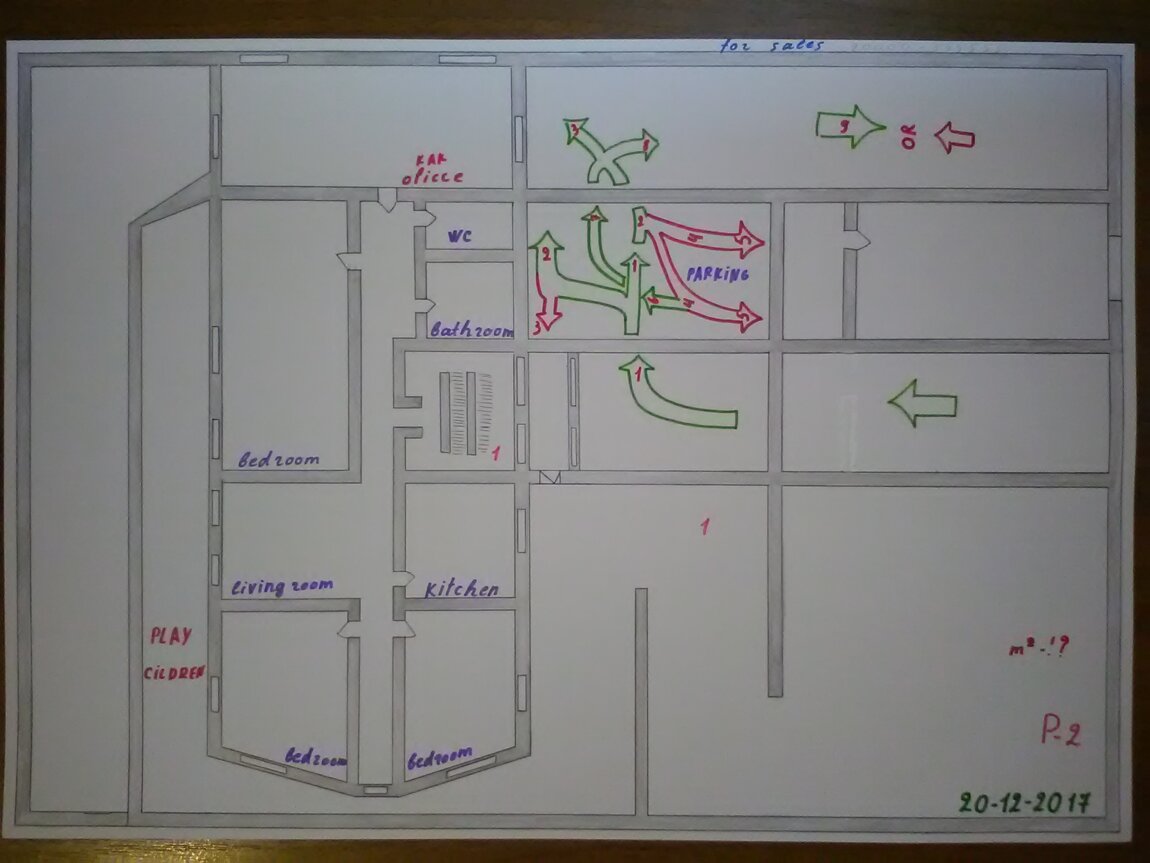 for sales
KAK
olicce
WC
bathroom
bedroom
living room
kitchen
bedroom
bedroom
PLAY
CiLDREN
1
1
3
9
OR
2
1
2
3
PARKiNG
1
m² - !?
P-2
20-12-2017